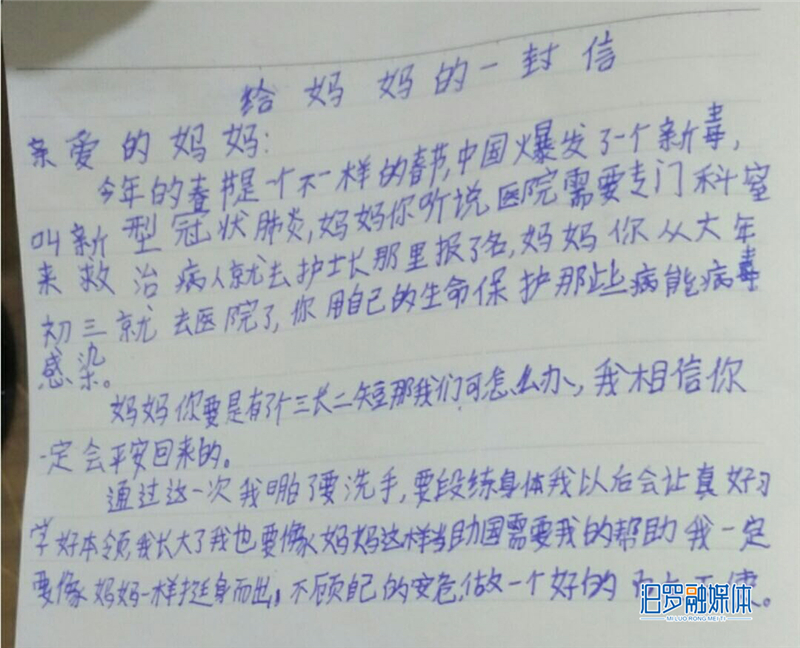 给妈妈的一封信
亲爱的妈妈:
今年的春节是一个不一样的春节,中国爆发了一个新毒,
叫新型冠状肺炎,妈妈你听说医院需要专门科室
来救治病人就去护士长那里报了名,妈妈你从大年
初三就去医院了,你用自己的生命保护那些病能病毒
感染。
妈妈你要是有了个三长二短那我们可怎么办,我相信你
一定会平安回来的。
通过这一次我明白了要洗手,要段练身体我以后会让真好习
学好本领,我长大了我也要像妈妈这样当助国需要我的帮助我一定
要像妈妈一样挺身而出,不顾自己的安危,做一个好的
汨罗融媒体
MI LUO RONG MEI TI